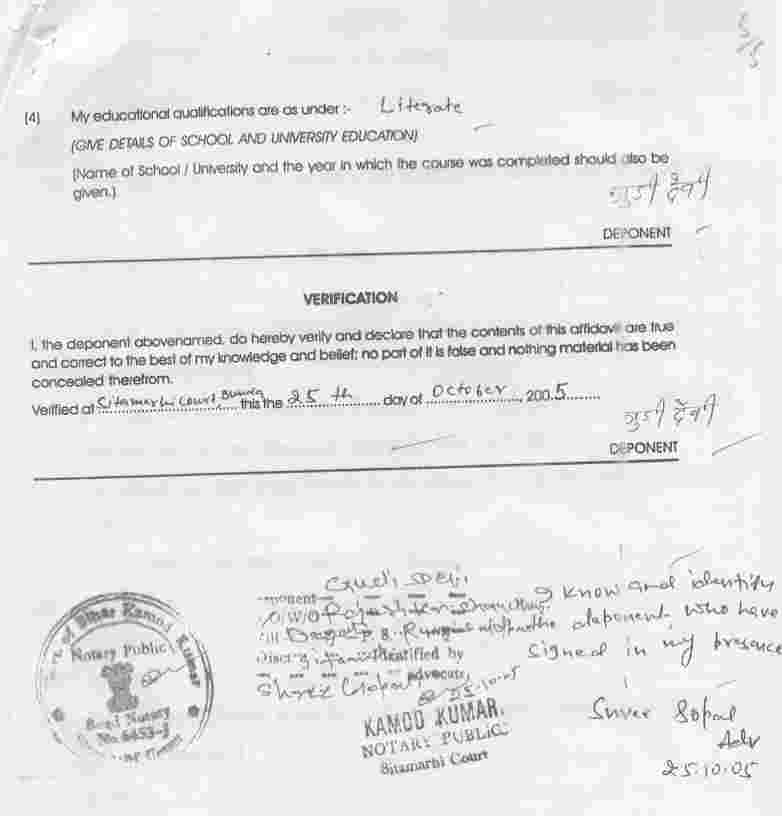 5/5
(4) My educational qualifications are as under :- Literate
(GIVE DETAILS OF SCHOOL AND UNIVERSITY EDUCATION)
(Name of School / University and the year in which the course was completed should also be
given.)
गुड्डी देवी
DEPONENT
VERIFICATION
I, the deponent abovenamed, do hereby verify and declare that the contents of this affidavit are true
and correct to the best of my knowledge and belief; no part of it is false and nothing material has been
concealed therefrom.
Verified at Sitamarhi Court this the 25 th day of October, 2005
गुड्डी देवी
DEPONENT
I know and identify
the deponent who have
signed in my presence
Identified by
Advocate
25.10.05
KAMOD KUMAR
NOTARY PUBLIC
Sitamarhi Court
Bihar Kamod Kumar
Notary Public
Regd Notary
No. 6453-J
Shree Gopal
Adv
25.10.05